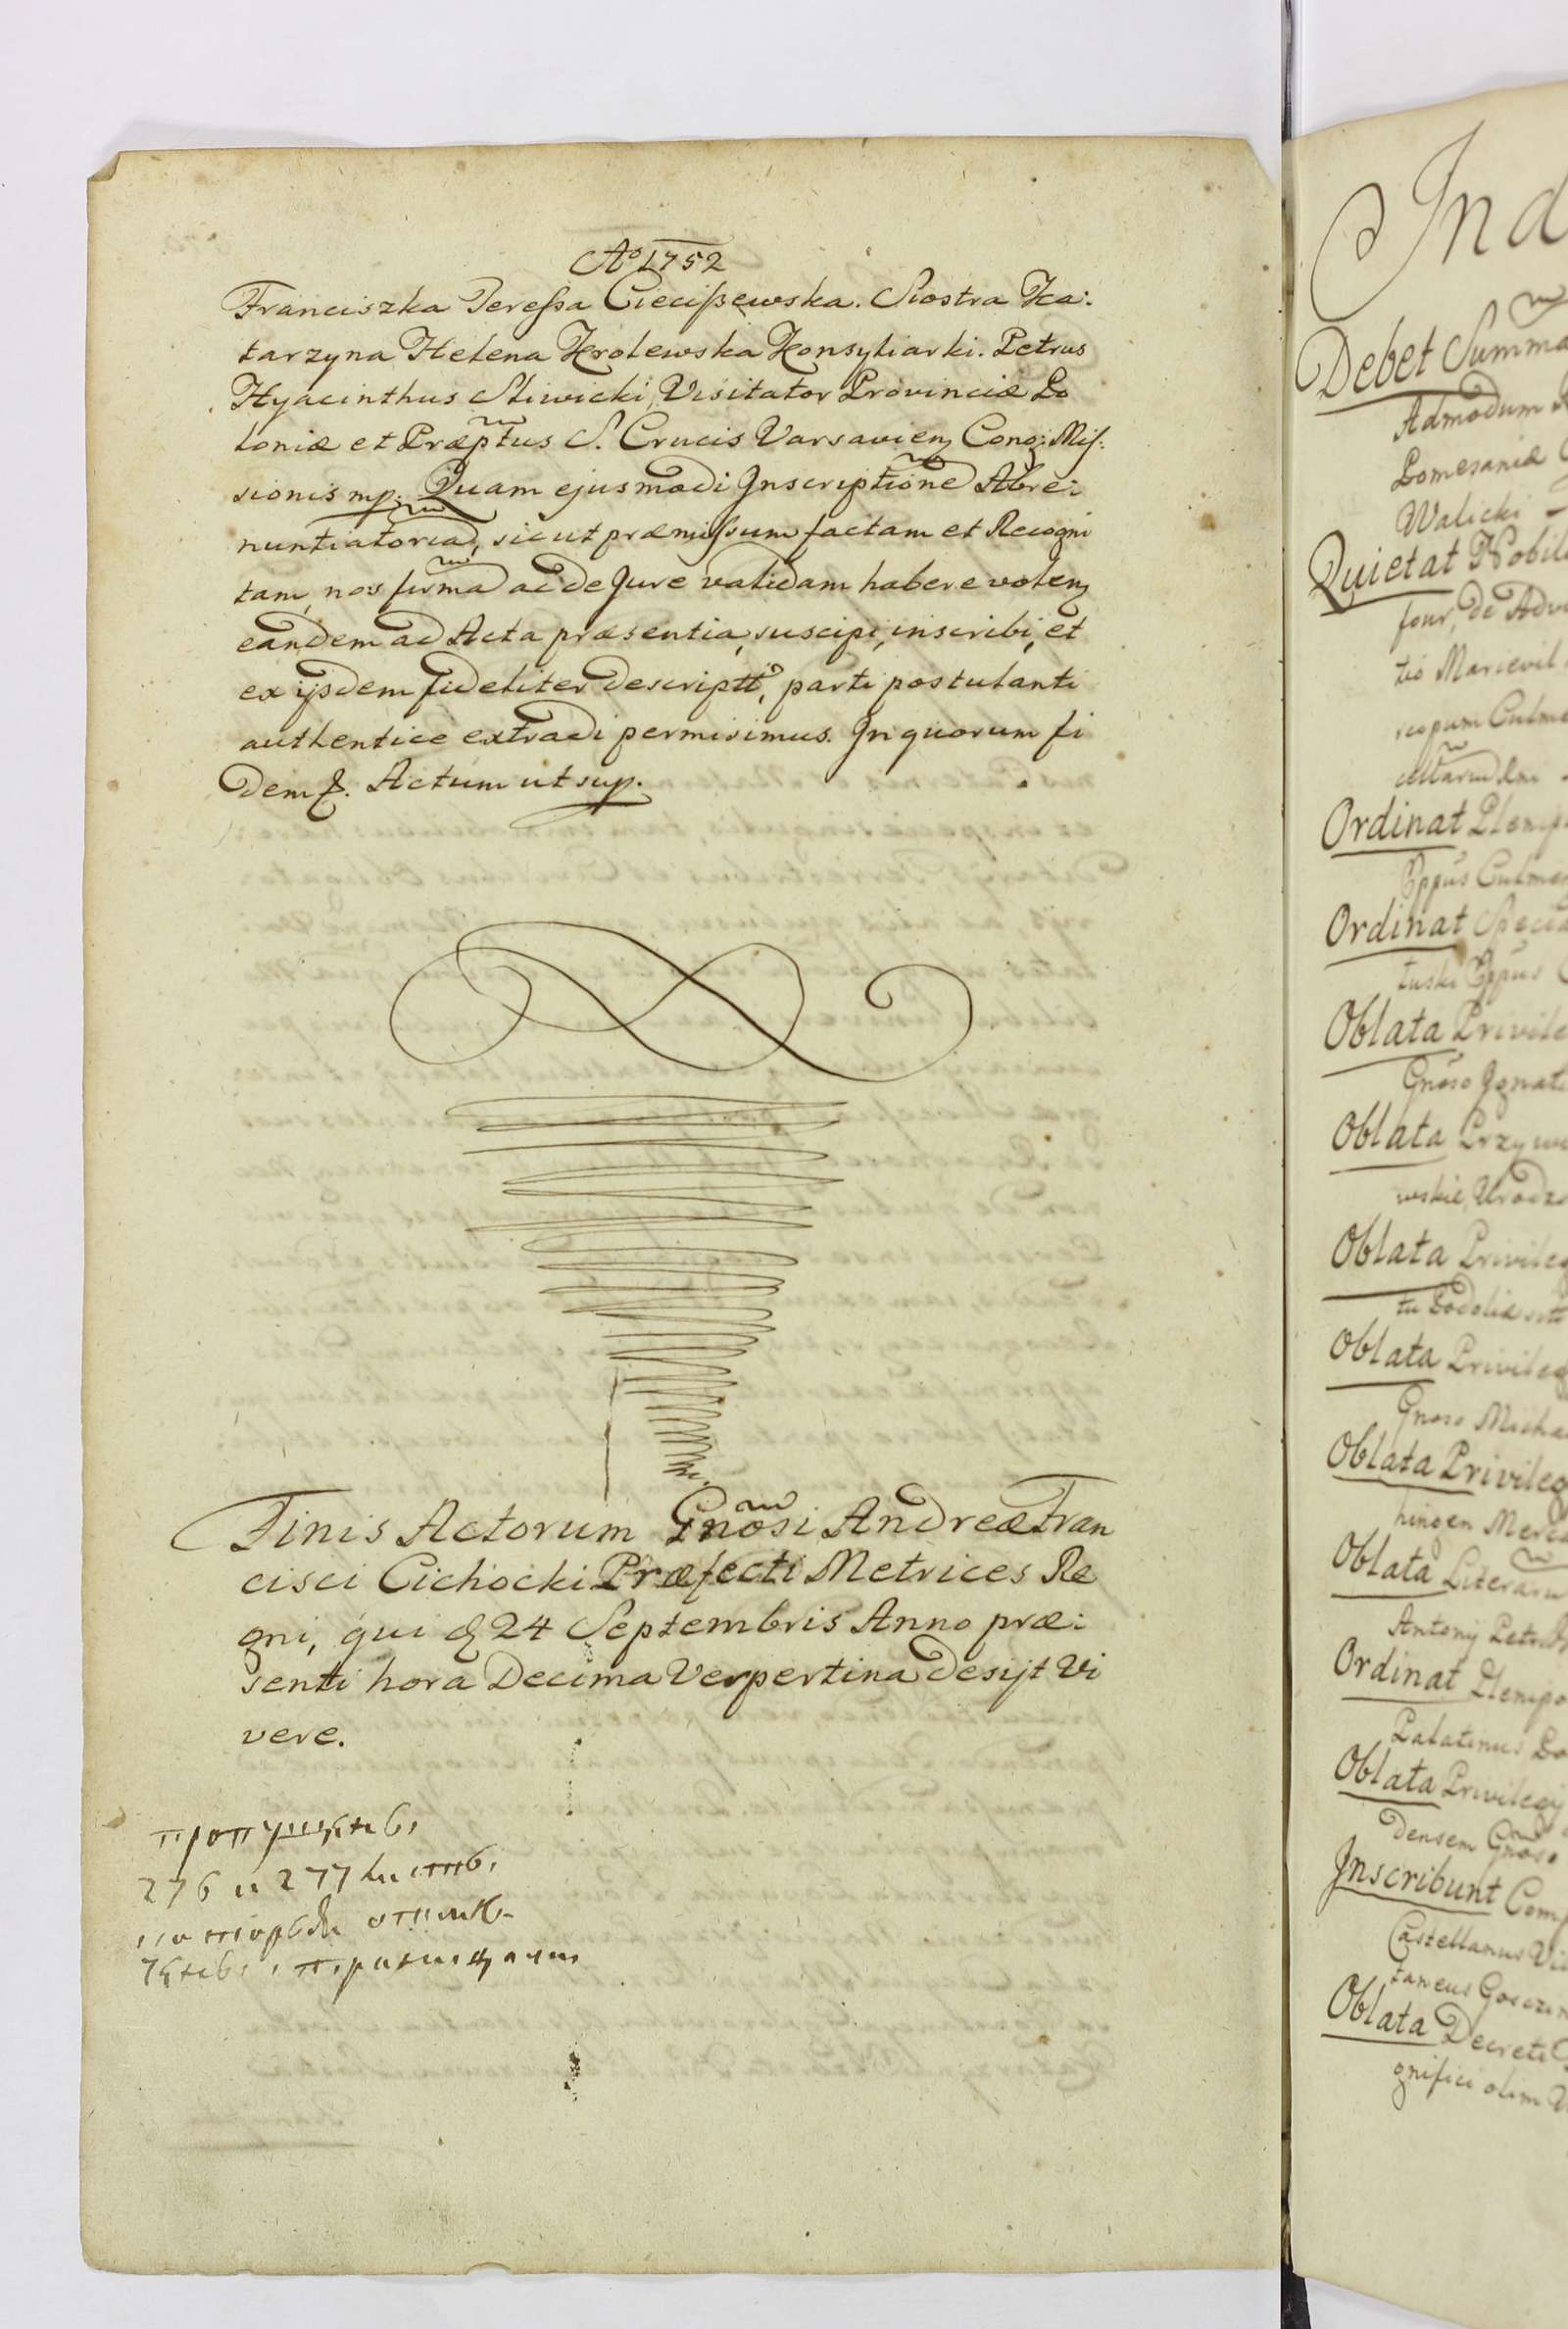 Aº 1752
Franciszka Teressa Ciecißewska. Siostra Ka:
tarzyna Helena Krolewska Konsyliarki. Petrus
Hyacinthus Sliwicki Visitator Provinciæ Po
loniæ et Præptus S. Crucis Varsavien Cong: Mis:
sionis mp. Quam ejusmodi Inscriptione Abre:
nuntiatoria, sicut præmissum factam et Recogni
tam, nos firma ac de Jure validam habere volen
eandem ad Acta præsentia, suscipi, inscribi, et
ex ijsdem fideliter descriptt, parti postulanti
authentice extradi permisimus. In quorum fi
dem &. Actum ut sup.
Finis Actorum Gnosi Andreæ Fran
cisci Cichocki Præfecti Metrices Re
gni, qui d 24 Septembris Anno præ:
senti hora Decima Verpertina desijt Vi
vere.
276 и 277
Ind
Debet Summa
Admodum
Pomesaniæ
Walicki
Quietat Nobil
four, de Adv
tio Marievil
Culm
Ordinat Plenip
Eppus Culme
Ordinat Specta
tuski Eppus
Oblata Privile
Gnoso Ignat
Oblata Przywi
wskie, Urodz
Oblata Privileg
tu Podoliæ
Oblata Privileg
Gnoso Micha
Oblata Privileg
hingen Merc
Oblata Literaru
Antony Petr
Ordinat Plenipo
Palatinus Po
Oblata Privilegy
densem Gnoso
Inscribunt Com
Castellanus Vi
taneus
Oblata Decreti
gnifici olim